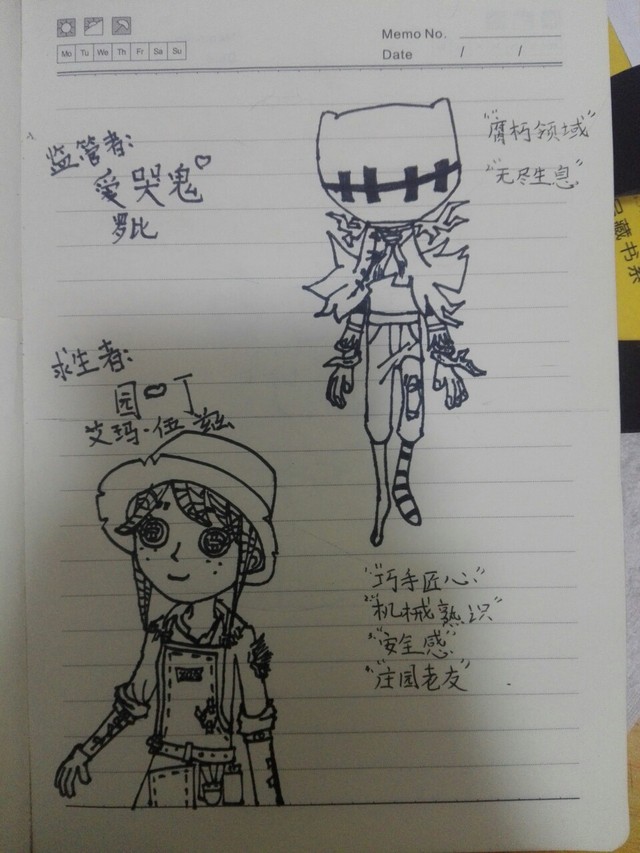 Memo No.
Mo Tu We Th Fr Sa Su
Date / /
监管者:
爱哭鬼
罗比
"腐朽领域"
"无尽生息"
求生者:
园丁
艾玛·伍兹
"巧手匠心"
"机械熟识"
"安全感"
"庄园老友"
藏书系